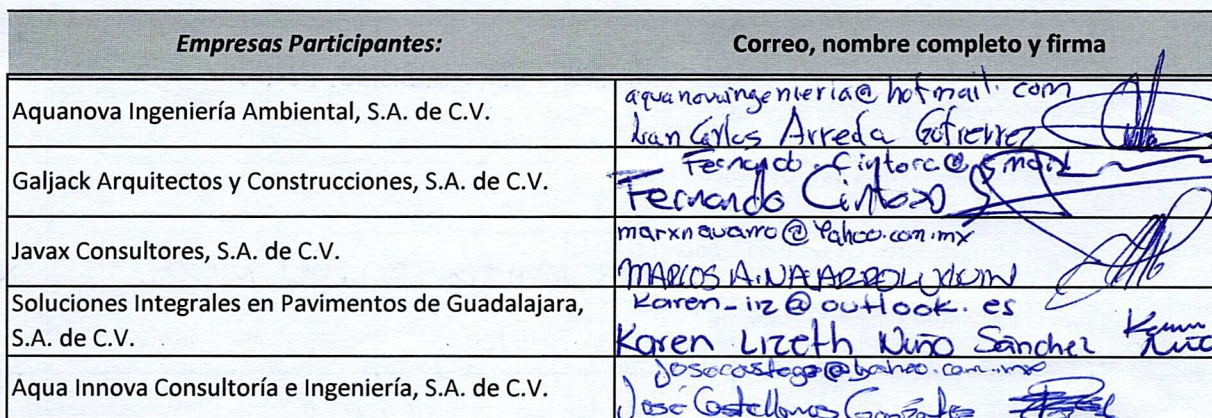 Empresas Participantes:
Correo, nombre completo y firma
Aquanova Ingeniería Ambiental, S.A. de C.V.
aquanovaingenieria@hotmail.com
Carlos Arreda Gutierrez
Galjack Arquitectos y Construcciones, S.A. de C.V.
Fernando.Cintora@Gmail
Fernando Cintora
Javax Consultores, S.A. de C.V.
marxnavarro@Yahoo.com.mx
MARCOS A. NAVARRO
Soluciones Integrales en Pavimentos de Guadalajara,
S.A. de C.V.
Karen_iz@outlook.es
Karen Lizeth Nuño Sánchez
Aqua Innova Consultoría e Ingeniería, S.A. de C.V.
José Castellanos González